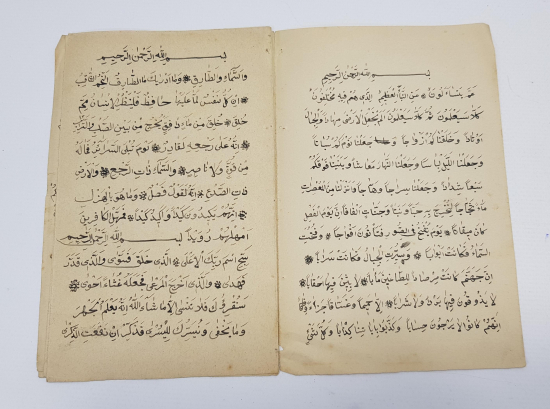 بسم الله الرحمن الرحيم
عم يتساءلون عن النبأ العظيم الذي هم فيه مختلفون
كلا سيعلمون ثم كلا سيعلمون الم نجعل الارض مهادا والجبال
اوتادا وخلقناكم ازواجا وجعلنا نومكم سباتا
وجعلنا الليل لباسا وجعلنا النهار معاشا وبنينا فوقكم
سبعا شدادا وجعلنا سراجا وهاجا وانزلنا من المعصرات
ماء ثجاجا لنخرج به حبا ونباتا وجنات الفافا ان يوم الفصل
كان ميقاتا يوم ينفخ في الصور فتأتون افواجا وفتحت
السماء فكانت ابوابا وسيرت الجبال فكانت سرابا
ان جهنم كانت مرصادا للطاغين مآبا لابثين فيها احقابا
لا يذوقون فيها بردا ولا شرابا الا حميما وغساقا جزاء وفاقا
انهم كانوا لا يرجون حسابا وكذبوا باياتنا كذابا وكل شئ
بسم الله الرحمن الرحيم
والسماء والطارق وما ادريك ما الطارق النجم الثاقب
ان كل نفس لما عليها حافظ فلينظر الانسان مم
خلق خلق من ماء دافق يخرج من بين الصلب والترائب
انه على رجعه لقادر يوم تبلى السرائر فما له
من قوة ولا ناصر والسماء ذات الرجع والارض
ذات الصدع انه لقول فصل وما هو بالهزل
انهم يكيدون كيدا واكيد كيدا فمهل الكافرين
امهلهم رويدا بسم الله الرحمن الرحيم
سبح اسم ربك الاعلى الذي خلق فسوى والذي قدر
فهدى والذي اخرج المرعى فجعله غثاء احوى
سنقرئك فلا تنسى الا ما شاء الله انه يعلم الجهر
وما يخفى ونيسرك لليسرى فذكر ان نفعت الذكرى